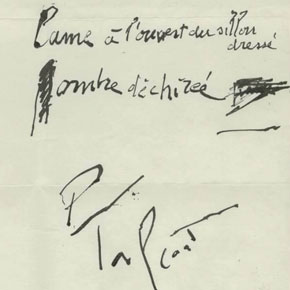 Lame à l'ouvert du sillon
dressé
l'ombre déchirée
P
Tal Coat